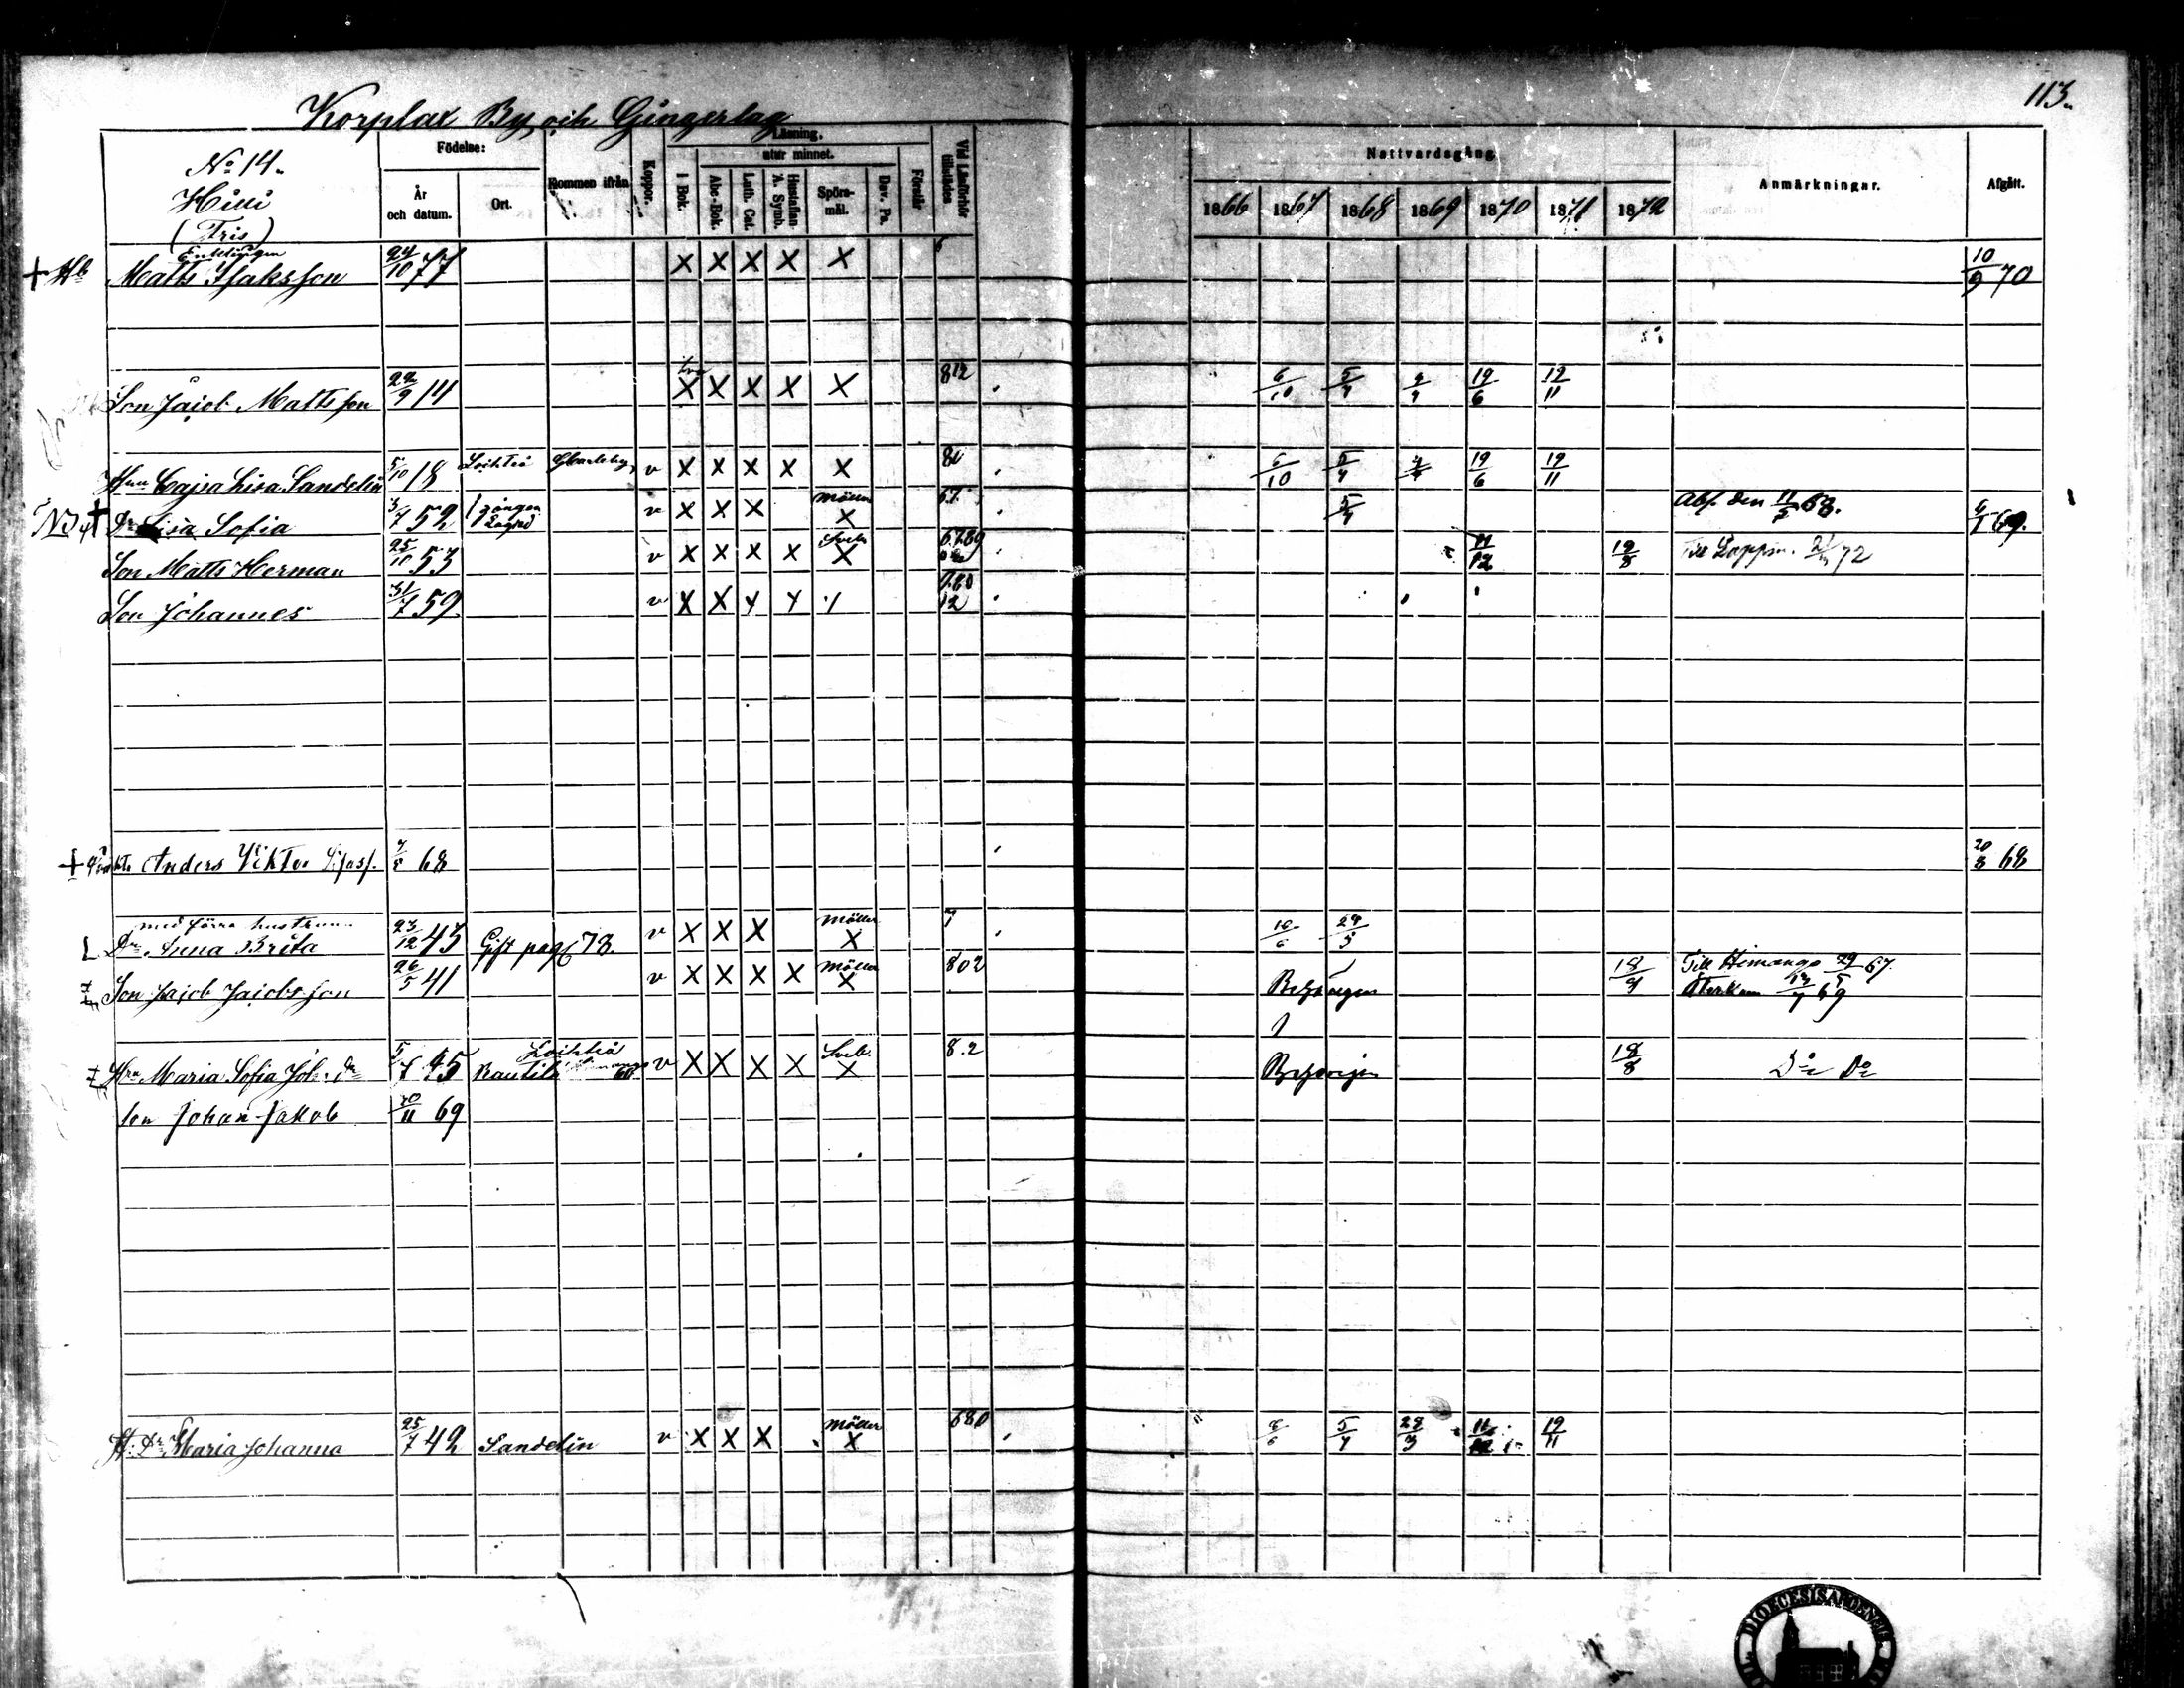 113.
Korplax By och Gingerlag
No 14.
Hilli
(Tris)
Födelse:
År och datum.
Ort.
Kommen ifrån
Koppor.
Läsning,
utur minnet.
I Bok.
Abc-Bok.
Luth. Cat.
Hustaflan A. Symb.
Spörs-mål.
Dav. Ps.
Förstår
Vid Läsförhör tillstädes
Nattvardsgång
1866 1867 1868 1869 1870 1871 1872
Anmärkningar.
Afgått.
Enklingen
+ Hb Matts Isaksson 24/10 77 X X X X X 6 10/9 70
Son Jacob Mattsson 22/9 14 X X X X X 812 6/10 5/7 19/6 12/11
Hun Cajsa Lisa Sandelin 5/10 18 Loihteå v X X X X X 6/10 5/7 19/6 12/11
Dr Lisa Sofia 3/7 52 v X X X Möller X 67 5/7 Abs. den 11/2 68. 69.
Son Matts Herman 25/10 53 v X X X X Sveb. X 6.7.89 11/12 12/8 Till Lappm. 72
Son Johannes 31/7 59 v X X Y Y 12
+ Anders Viktor 7/8 68 20/8 68
med förra hustrun
Dr Anna Brita 23/12 43 Gift pag 78. v X X X Möller X 7 16/6 29/5
Son Jacob Jacobsson 26/5 41 v X X X X Möller X 802 18/9 Till Himango 29/5 67.
Återkom 69
Hru Maria Sofia Joh. dr 45 Rautila Loihteå v X X X X Sveb. X 8.2 18/8 Do Do
Son Johan Jakob 20/11 69
H. Dr Maria Johanna 25/7 42 Sandelin v X X X Möller X 680 5/7 28/3 11/12 12/11
DIOECESISARDENSIS